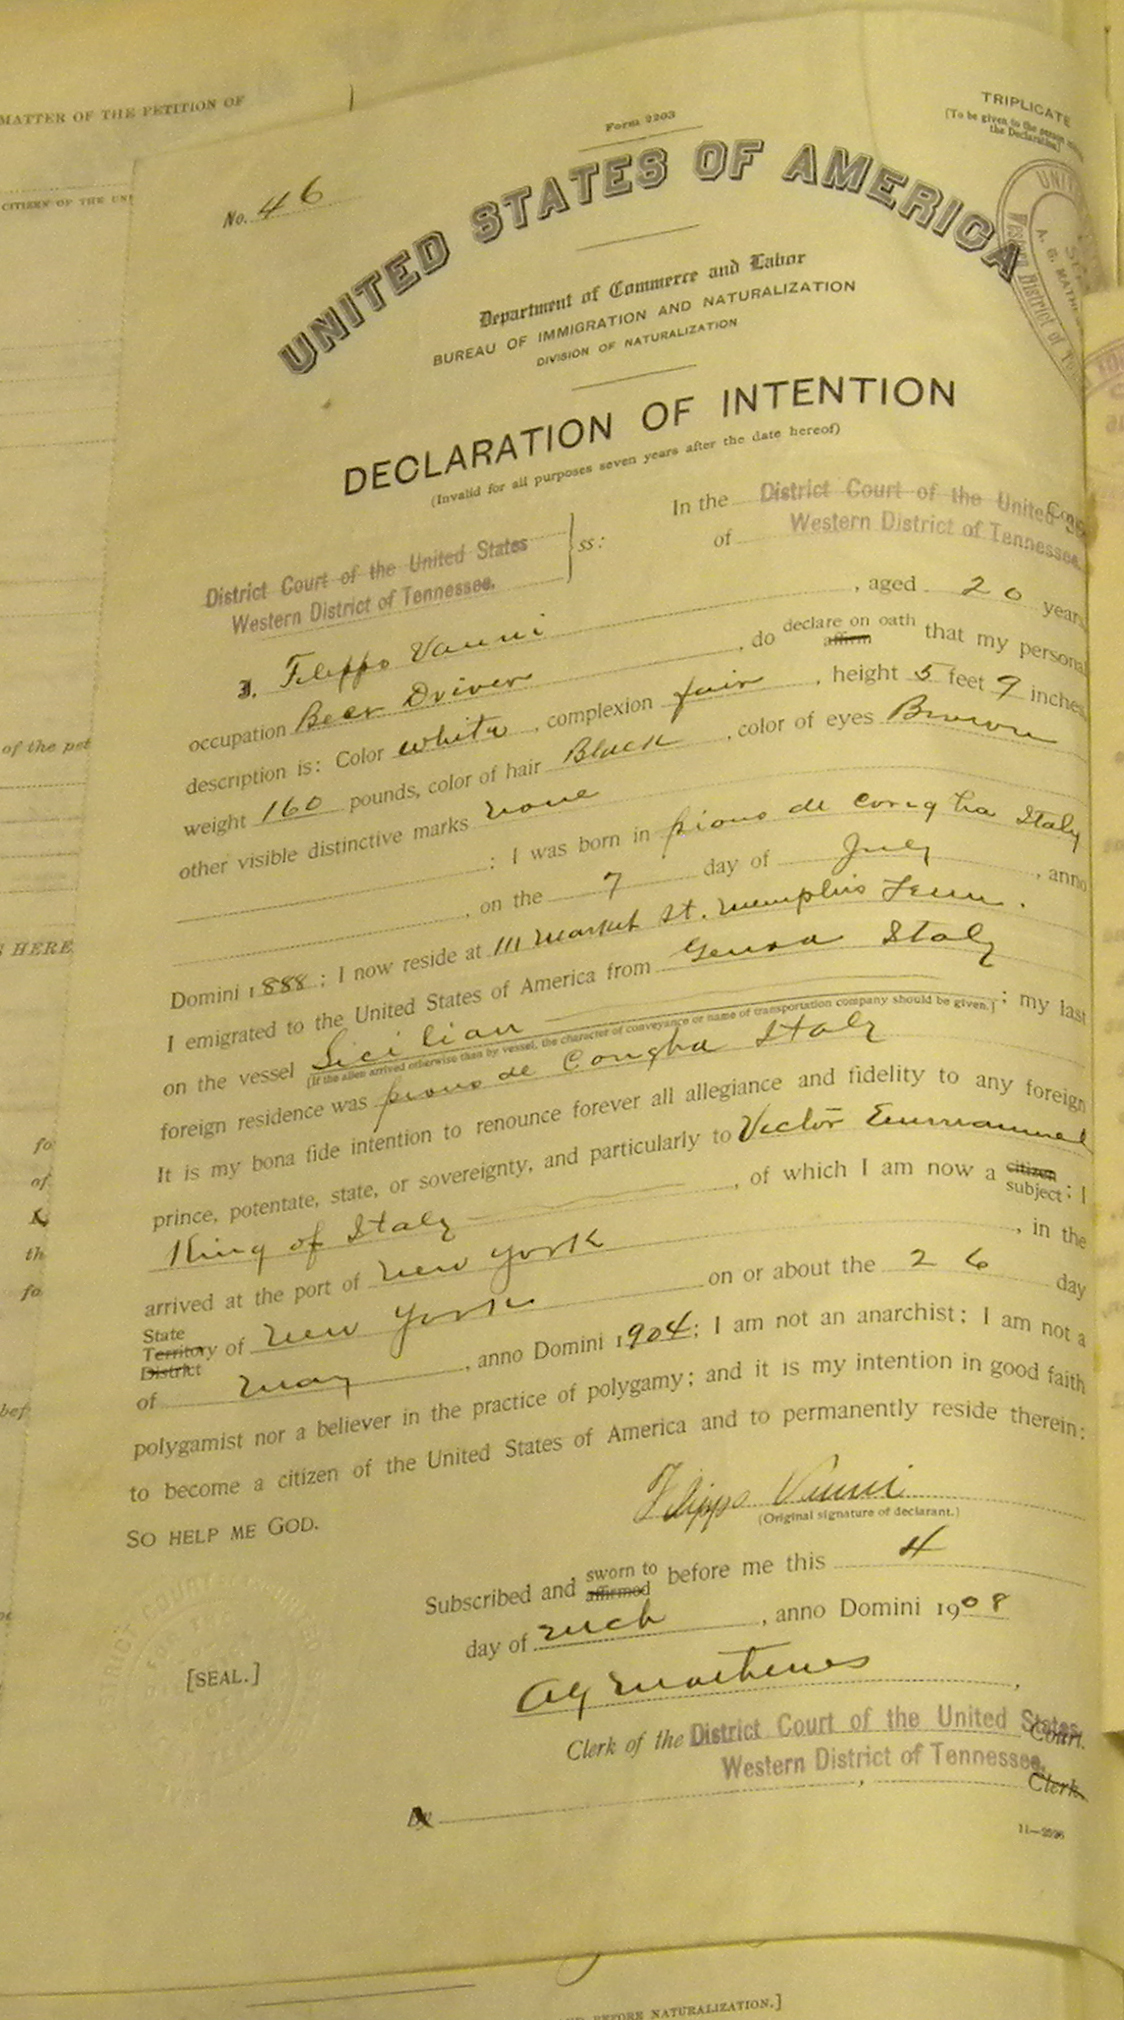 MATTER OF THE PETITION OF
CITIZEN OF THE UNI
of the pet
S HERE
fo
of
th
fo
bef
Form 2203
TRIPLICATE
[To be given to the person
the Declaration]
No. 46
UNITED STATES OF AMERICA
Department of Commerce and Labor
BUREAU OF IMMIGRATION AND NATURALIZATION
DIVISION OF NATURALIZATION
DECLARATION OF INTENTION
(Invalid for all purposes seven years after the date hereof)
In the District Court of the United
of Western District of Tennessee.
District Court of the United States
Western District of Tennessee.
ss:
I, Filippo Vanni, aged 20 years,
occupation Beer Driver, do declare on oath affirm that my personal
description is: Color white, complexion fair, height 5 feet 9 inches,
weight 160 pounds, color of hair Black, color of eyes Brown
other visible distinctive marks none
: I was born in piano de Corigha Italy
, on the 7 day of July, anno
Domini 1888; I now reside at 111 Market St. Memphis Tenn.
I emigrated to the United States of America from Genoa Italy
on the vessel Sicilian; my last
(If the alien arrived otherwise than by vessel, the character of conveyance or name of transportation company should be given.)
foreign residence was piano de Congha Italy
It is my bona fide intention to renounce forever all allegiance and fidelity to any foreign
prince, potentate, state, or sovereignty, and particularly to Victor Emmanuel
King of Italy, of which I am now a citizen subject; I
arrived at the port of New York, in the
State Territory District of New York on or about the 26 day
of May, anno Domini 1904; I am not an anarchist; I am not a
polygamist nor a believer in the practice of polygamy; and it is my intention in good faith
to become a citizen of the United States of America and to permanently reside therein:
SO HELP ME GOD.
Filippo Vanni
(Original signature of declarant.)
Subscribed and sworn to affirmed before me this 4
day of Mch, anno Domini 1908
[SEAL.]
A G Mathews
Clerk of the District Court of the United States Court.
Western District of Tennessee.
By , Clerk.
11—2226
BEFORE NATURALIZATION.]